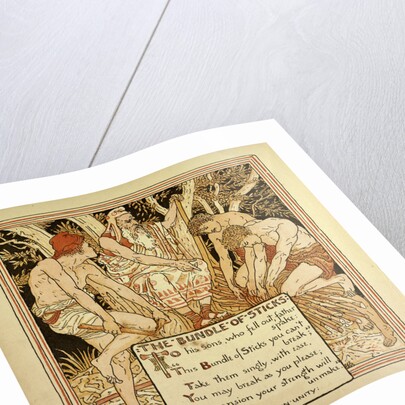 THE·BUNDLE·OF·STICKS:
To his sons, who fell out, father
spake:
This Bundle of Sticks you can't
break;
Take them singly, with ease,
You may break as you please,
dissension your strength will
unmake
UNITY